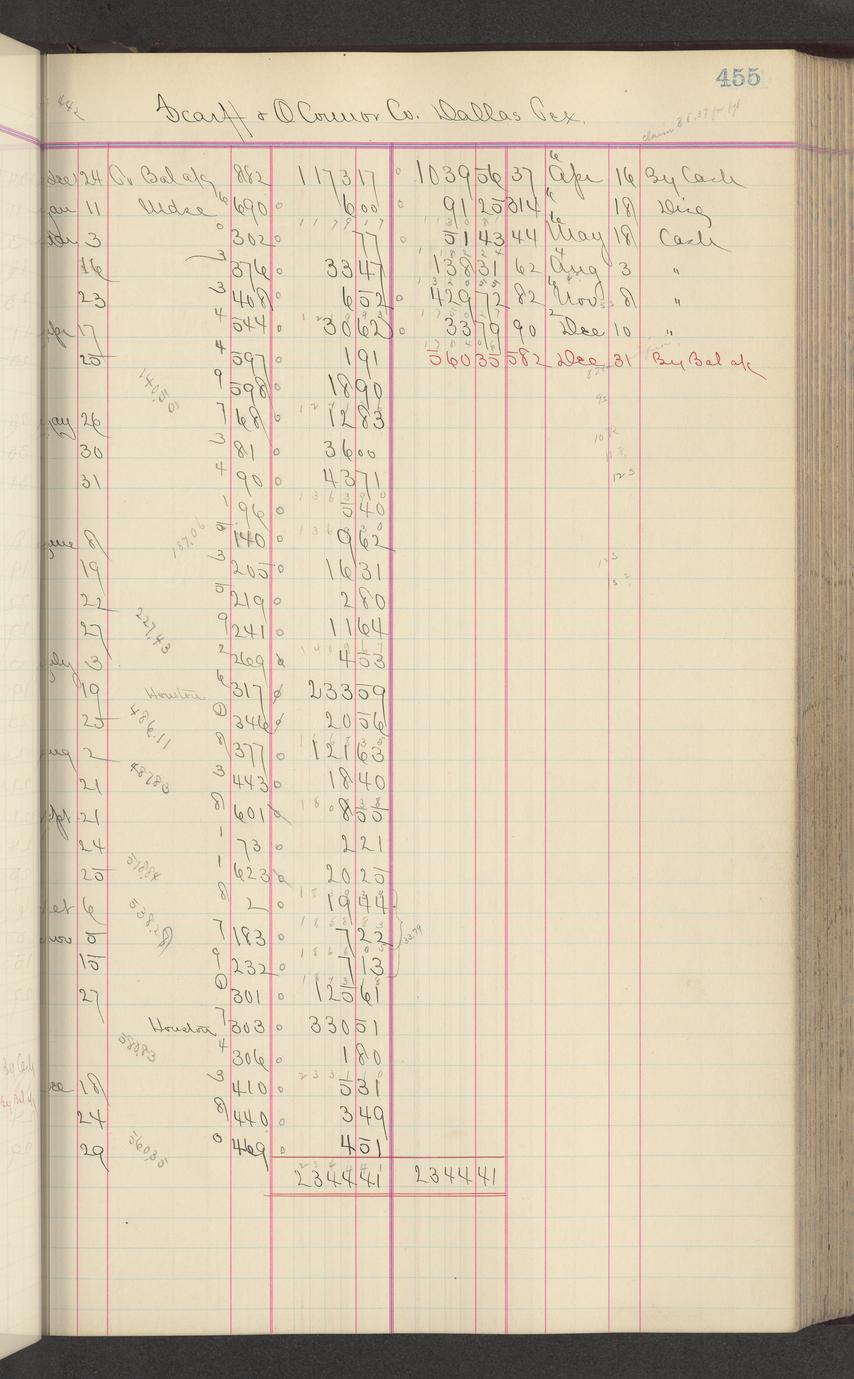 455
442
Scarff & O'Connor Co. Dallas Tex.
24 Bal a/c 882 1173 17 1039 56 37 Apr 16 By Cash
11 Mdse 6 690 6 00 91 25 314 " 18 Disc
3 0 302 77 51 43 44 May 18 Cash
16 3 376 33 47 138 31 62 Aug 3 "
23 3 408 6 52 429 72 82 Nov 8 "
17 4 544 30 62 33 79 90 Dec 10 "
25 4 597 1 91 560 35 582 Dec 31 By Bal a/c
140.50 9 598 18 90
26 7 68 12 83
30 3 81 36 00
31 4 90 43 71
1 96 5 40
8 5 140 9 62
187.06
19 3 205 16 31
22 5 219 2 80
27 227.43 9 241 11 64
3 2 269 4 53
19 Houston 6 317 233 59
25 486.11 0 346 20 56
2 8 377 121 63
21 487.83 3 443 18 40
21 8 601 8 55
24 1 73 2 21
25 1 623 20 25
6 8 2 19 44
5 7 183 7 22
33.79
15 9 232 7 13
27 0 301 125 61
Houston 7 303 330 51
580.83 4 306 1 80
18 3 410 5 31
24 8 440 3 49
29 560.35 0 469 4 51
2344 41 2344 41